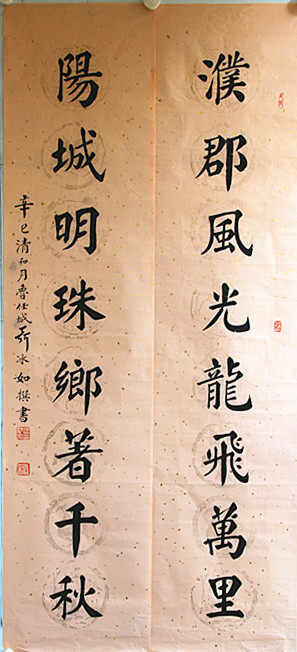 濮郡風光龍飛萬里
陽城明珠鄉著千秋
辛巳清和月魯任城冰如撰書